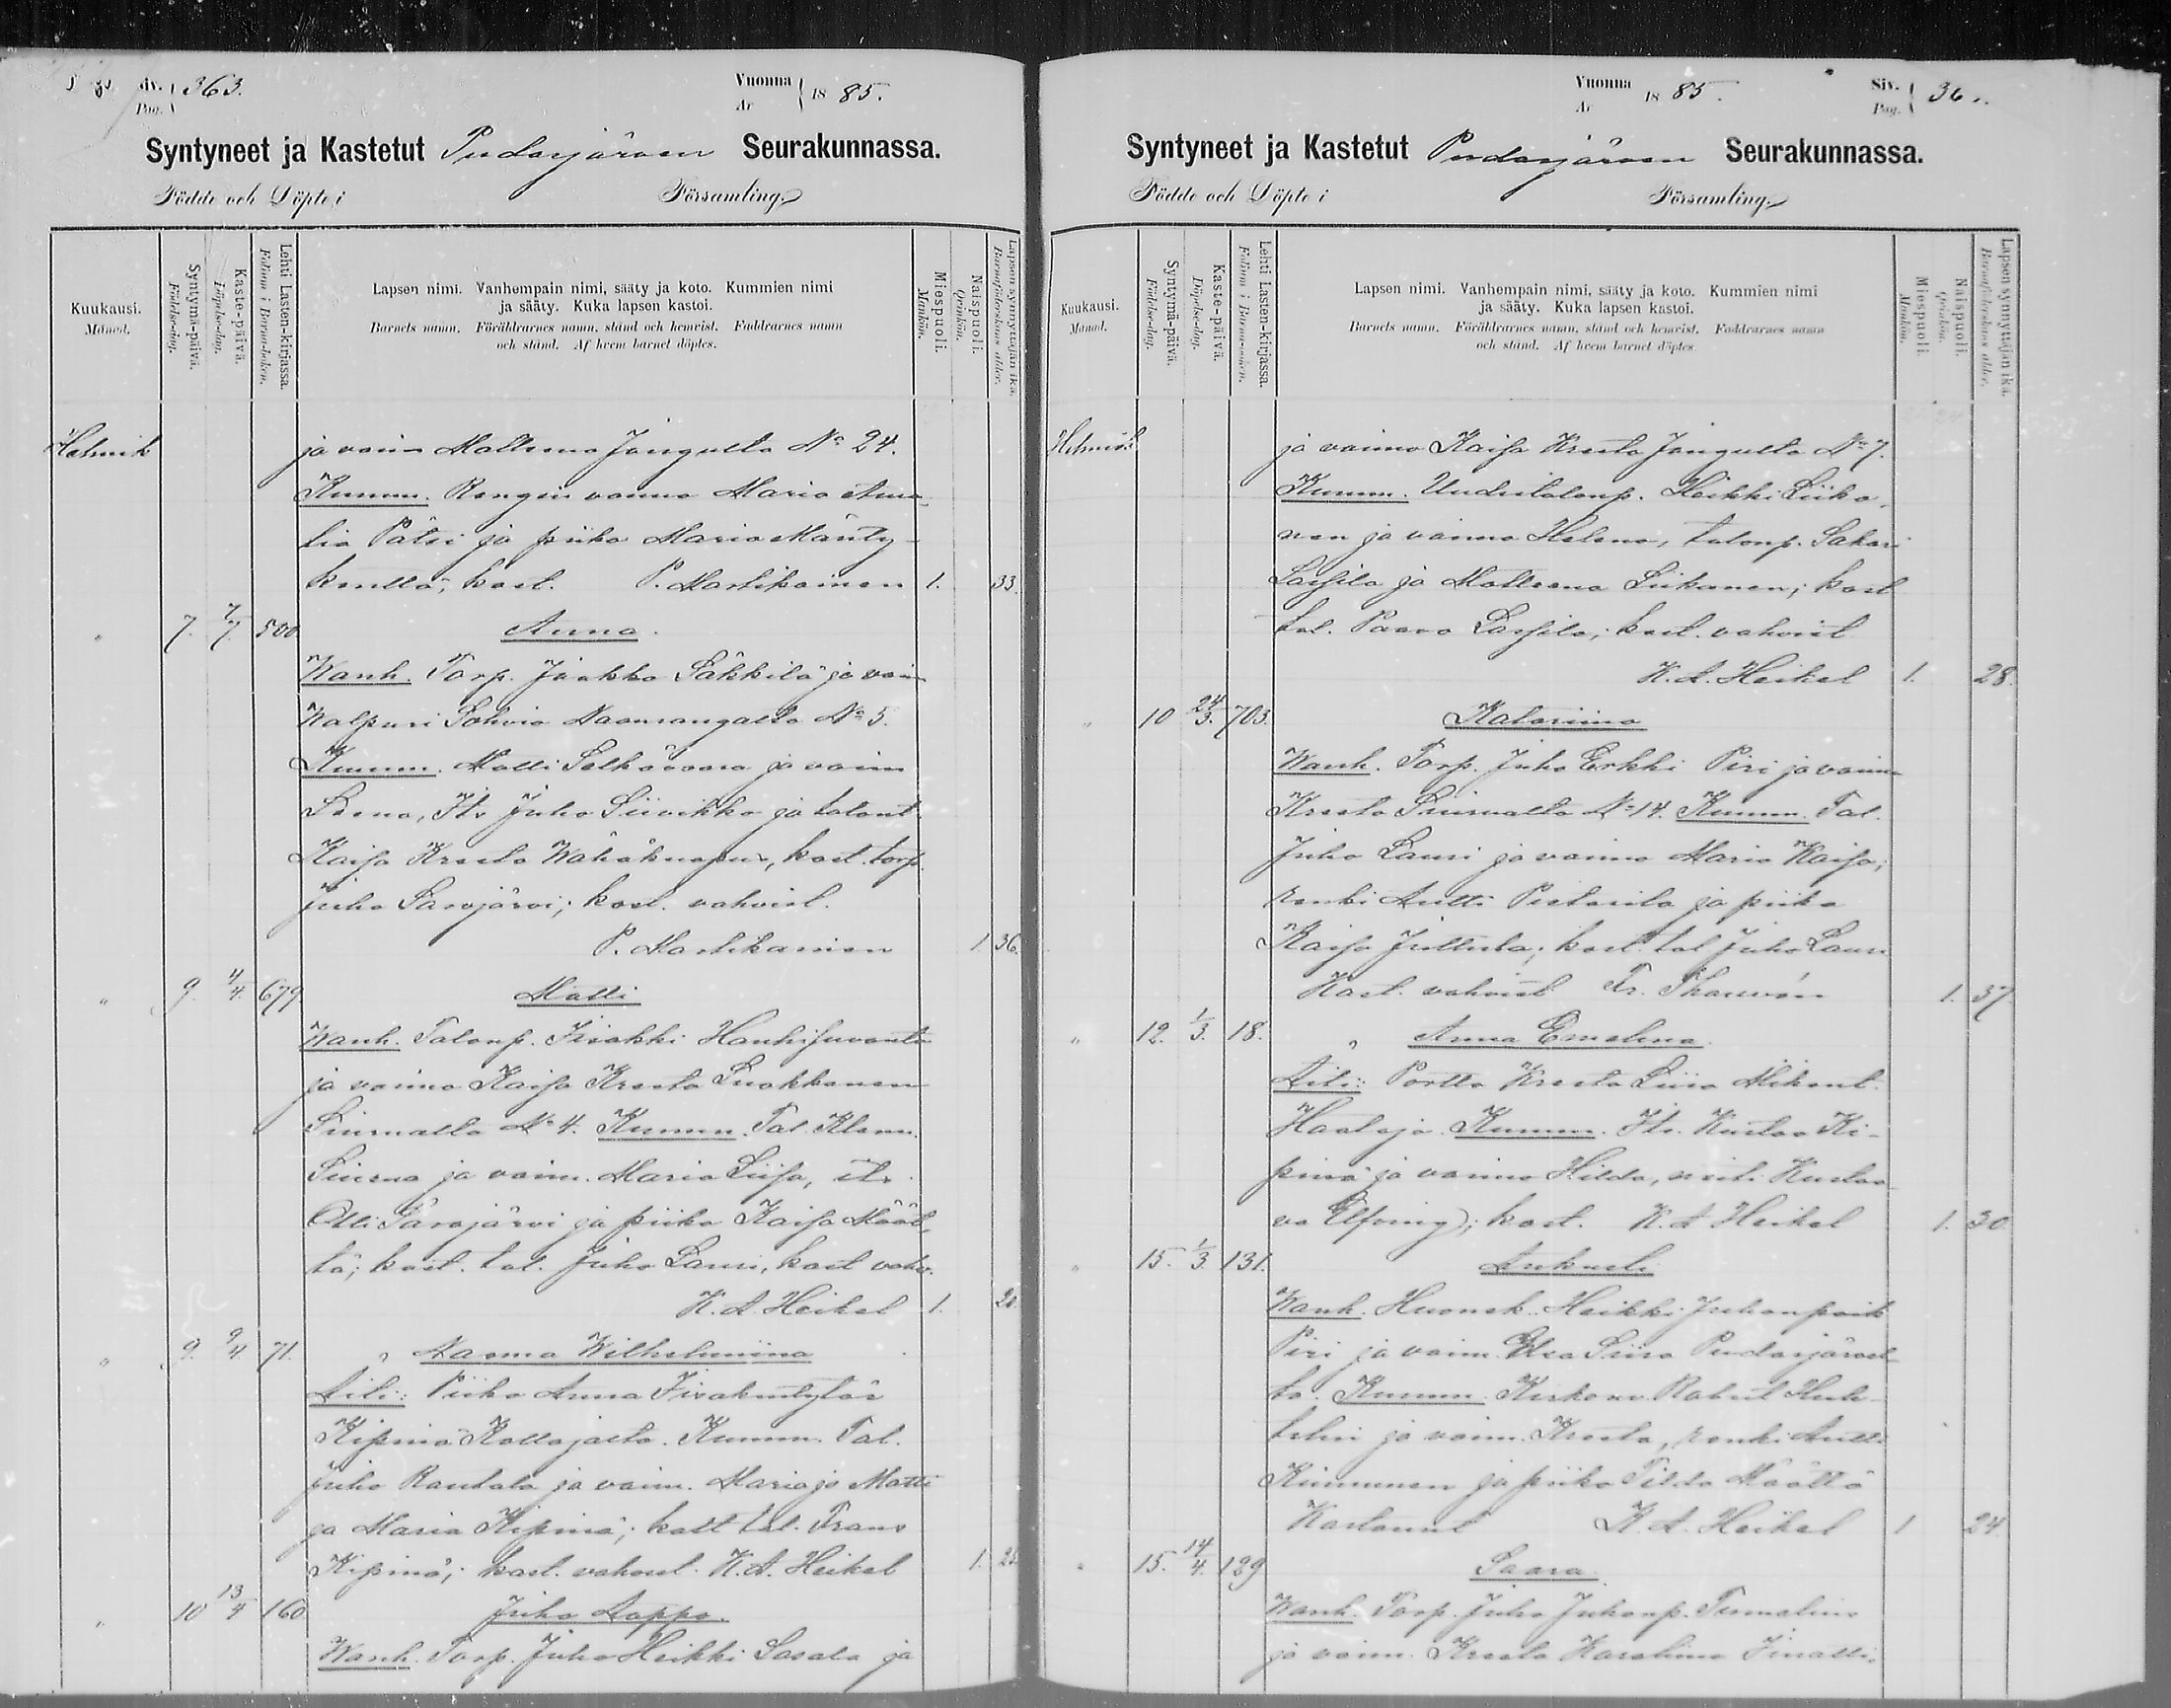 Siv. Pag. 363.
Vuonna År 1885.
Syntyneet ja Kastetut Pudasjärven Seurakunnassa.
Födde och Döpte i Församling.
Kuukausi. Månad.
Syntymä-päivä. Födelse-dag.
Kaste-päivä. Döpelse-dag.
Lehti Lasten-kirjassa. Folium i Barna-boken.
Lapsen nimi. Vanhempain nimi, sääty ja koto. Kummien nimi
ja sääty. Kuka lapsen kastoi.
Barnets namn. Föräldrarnes namn, stånd och hemvist. Faddrarnes namn
och stånd. Af hvem barnet döptes.
Miespuoli. Mankön.
Naispuoli. Qvinkön.
Lapsen synnyttäjän ikä. Barnaföderskans ålder.
Helmik ja vaim Mallsena Jongulta No 24.
Kumm. Rengin vaimo Maria
lia Pätsi ja piika Maria Mänty-
kentta; kast. P. Martikainen 1. 33.
" 7. 7/7. 500. Anna.
Wanh. Torp. Jaakko Säkkilä ja vaim
Walpuri Naamangalta No 5.
Kumm. Matti Selkävaara ja vaim
Leena, Its. Juho Siivikko ja talont.
Kaisa Kreeta kast. torp.
Juho Sarajärvi; kast. vahvist.
P. Martikainen 1 36.
" 9. 4/4. 679 Matti
Wanh. Talonp. Iisakki Hanhisuvanto
ja vaimo Kaisa Kreeta Luokkanen
Siurualta No 4. Kumm. Tal.
Siurua ja vaim. Maria Liisa, its.
Olli Sarajärvi ja piika Kaisa Määt-
tä; kast. tal. Juho Lauri, kast vahv.
K. A. Heikel 1.
" 9. 9/4. 71. Naema Wilhelmiina
Äiti: Piika Anna Iisakintytär
Kipinä Kollajalta. Kumm. Tal.
Juho Rantala ja vaim. Maria ja Matti
ja Maria Kipinä; kast tal. Frans
Kipinä; kast. vahvist. K. A. Heikel 1.
" 10 13/4 160 Juho Aappo.
Wanh. Torp. Juho Heikki Sasala ja
Vuonna År 1885.
Siv. Pag. 36
Syntyneet ja Kastetut Pudasjärven Seurakunnassa.
Födde och Döpte i Församling.
Kuukausi. Månad.
Syntymä-päivä. Födelse-dag.
Kaste-päivä. Döpelse-dag.
Lehti Lasten-kirjassa. Folium i Barna-boken.
Lapsen nimi. Vanhempain nimi, sääty ja koto. Kummien nimi
ja sääty. Kuka lapsen kastoi.
Barnets namn. Föräldrarnes namn, stånd och hemvist. Faddrarnes namn
och stånd. Af hvem barnet döptes.
Miespuoli. Mankön.
Naispuoli. Qvinkön.
Lapsen synnyttäjän ikä. Barnaföderskans ålder.
Helmik ja vaimo Kaisa Kreeta Jongulta No 7.
Kumm. Uudistalonp. Heikki Liika-
nen ja vaimo Helena, talonp. Sakari
Lassila ja Mallseena Liikanen; kast
tal. Paavo Lassila; kast. vahvist
K. A. Heikel 1. 28.
" 10 24/3. 703. Katariina
Wanh. Torp. Juho Erkki Piri ja vaim
Kreeta Siurualta No 14. Kumm. Tal.
Juho Lauri ja vaimo Maria Kaisa;
renki Antti Pietarila ja piika
Kaisa kast. tal Juho Lauri
Kast. vahvist Fr. Thauvón 1. 37
" 12. 1/3. 18. Anna Emelina.
Äiti: Portto Kreeta Liisa Mikont.
Haataja. Kumm. Its. Kustaa Ki-
pinä ja vaimo Hilda, neiti Kustaa-
va Elfving; kast. K. A Heikel 1. 30
" 15. 1/3. 131. Aukusti
Wanh. Huonek. Heikki Juhanpoik
Piri ja vaim. Elsa Liisa Pudasjärvel-
tä. Kumm. Kirkonv. Robert Huh-
telin ja vaim. Kreeta, renki Antti
Kinnunen ja piika Tilda Määttä
Kastanut K. A. Heikel 1 24
" 15. 14/4. 189 Saara.
Wanh. Torp. Juho Juhonp.
ja vaim. Kreeta Karoliina